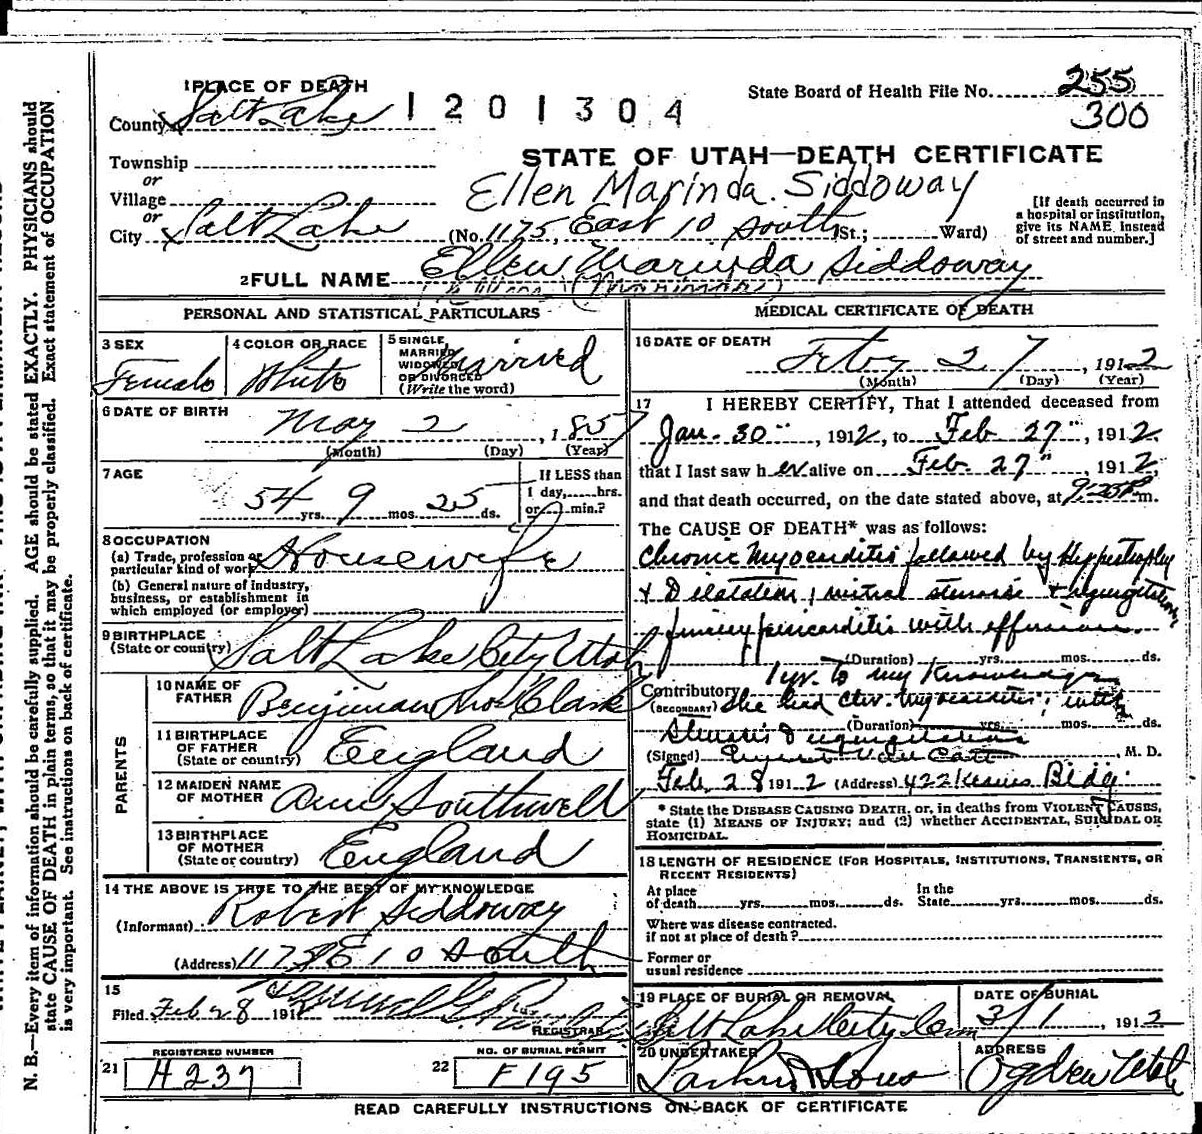 1 PLACE OF DEATH
County Salt Lake
1201304
State Board of Health File No. 255
300
STATE OF UTAH—DEATH CERTIFICATE
Township
or
Village
or
City Salt Lake
Ellen Marinda Siddoway
(No. 1175, East 10 South St.; Ward)
[If death occurred in
a hospital or institution,
give its NAME instead
of street and number.]
2 FULL NAME Ellen Marinda Siddoway
PERSONAL AND STATISTICAL PARTICULARS
3 SEX
Female
4 COLOR OR RACE
White
5 SINGLE,
MARRIED
WIDOWED
OR DIVORCED
(Write the word)
Married
6 DATE OF BIRTH
May 2, 1857
(Month) (Day) (Year)
7 AGE
54 yrs. 9 mos. 25 ds.
If LESS than
1 day, hrs.
or min.?
8 OCCUPATION
(a) Trade, profession or
particular kind of work Housewife
(b) General nature of industry,
business, or establishment in
which employed (or employer)
9 BIRTHPLACE
(State or country) Salt Lake City Utah
PARENTS
10 NAME OF
FATHER Benjiman Thos Clark
11 BIRTHPLACE
OF FATHER
(State or country) England
12 MAIDEN NAME
OF MOTHER Ann Southwell
13 BIRTHPLACE
OF MOTHER
(State or country) England
14 THE ABOVE IS TRUE TO THE BEST OF MY KNOWLEDGE
(Informant) Robert Siddoway
(Address) 1175 E 10 South
15
Filed Feb 28 191
REGISTRAR
REGISTERED NUMBER
21 H237
NO. OF BURIAL PERMIT
22 F195
MEDICAL CERTIFICATE OF DEATH
16 DATE OF DEATH
Feby 27, 1912
(Month) (Day) (Year)
17 I HEREBY CERTIFY, That I attended deceased from
Jan. 30", 1912, to Feb 27", 1912,
that I last saw her alive on Feb. 27", 1912,
and that death occurred, on the date stated above, at 9:25 P m.
The CAUSE OF DEATH* was as follows:
Chronic Myocarditis followed by Hypertrophy
& Dilatation; mitral stenosis & regurgitation
pericarditis with effusion.
(Duration) yrs. mos. ds.
1 yr. to my Knowledge
Contributory She had Chr. Myocarditis; with
(SECONDARY)
(Duration) yrs. mos. ds.
Stenosis & regurgitation
(Signed) , M. D.
Feb. 28 1912 (Address) 422 Kearns Bldg.
* State the DISEASE CAUSING DEATH, or, in deaths from VIOLENT CAUSES,
state (1) MEANS OF INJURY; and (2) whether ACCIDENTAL, SUICIDAL OR
HOMICIDAL.
18 LENGTH OF RESIDENCE (FOR HOSPITALS, INSTITUTIONS, TRANSIENTS, OR
RECENT RESIDENTS)
At place
of death yrs. mos. ds.
In the
State yrs. mos. ds.
Where was disease contracted.
if not at place of death?
Former or
usual residence
19 PLACE OF BURIAL OR REMOVAL
Salt Lake City Cem
DATE OF BURIAL
3/1, 1912
20 UNDERTAKER
Larkin & Sons
ADDRESS
Ogden Utah
READ CAREFULLY INSTRUCTIONS ON BACK OF CERTIFICATE
N. B.—Every item of information should be carefully supplied. AGE should be stated EXACTLY. PHYSICIANS should
state CAUSE OF DEATH in plain terms, so that it may be properly classified. Exact statement of OCCUPATION
is very important. See instructions on back of certificate.